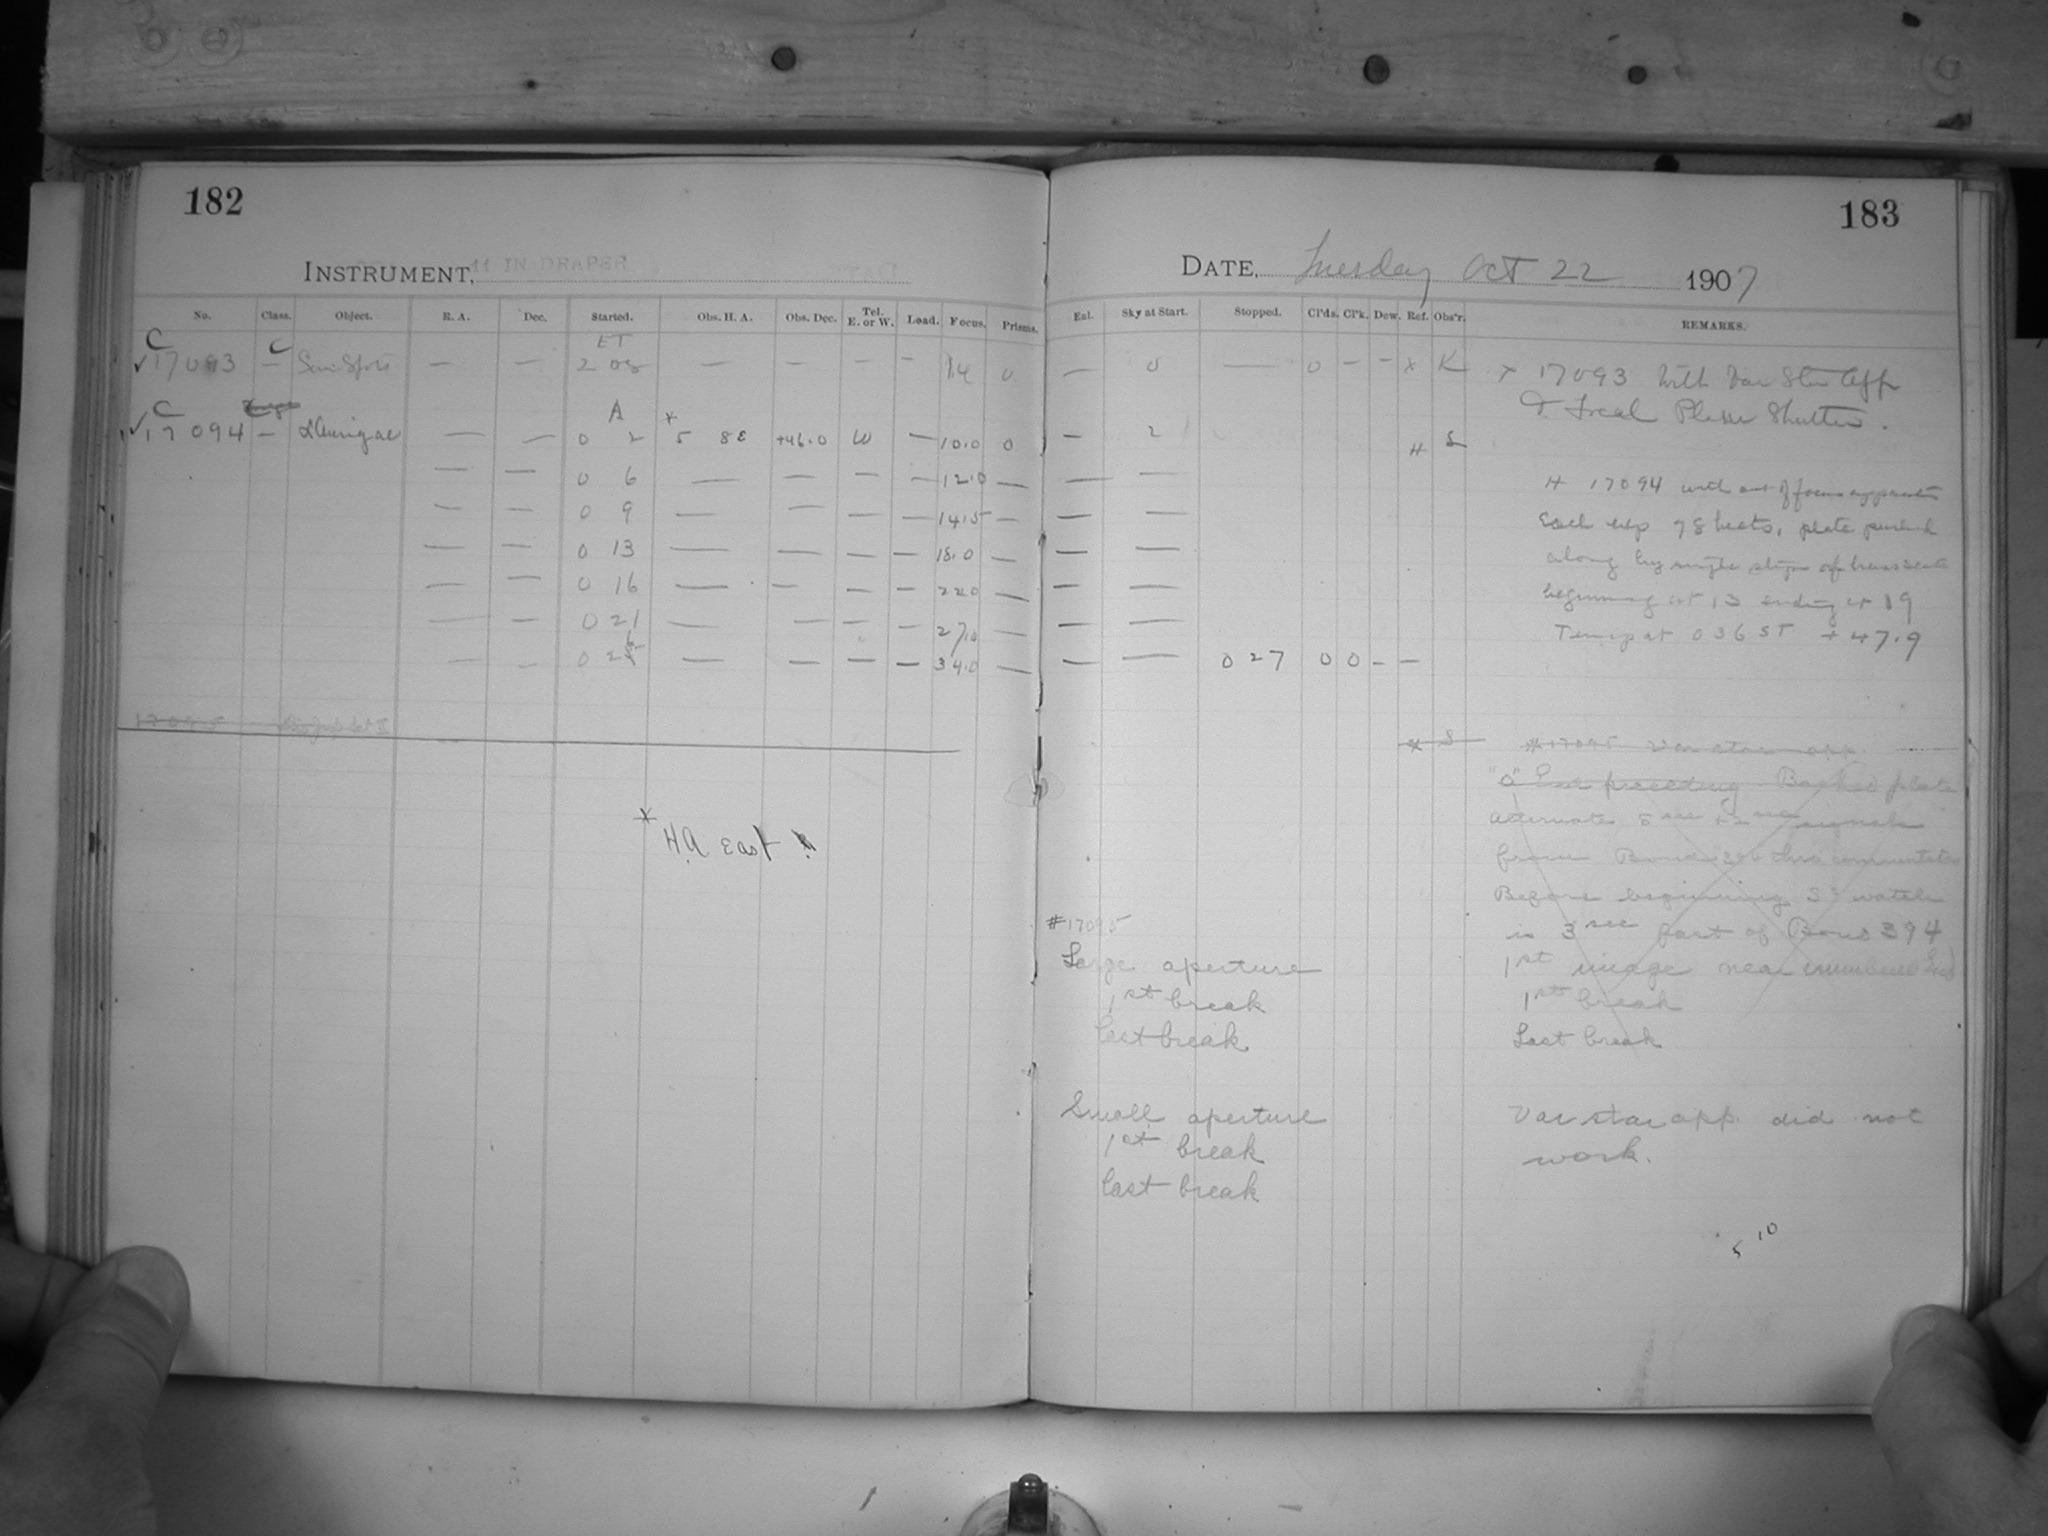 182
INSTRUMENT, 11 IN DRAPER
No. Class. Object. R. A. Dec. Started. Obs. H. A. Obs. Dec. Tel. E. or W. Load. Focus. Prisms.
ET
✓ C 17093 — C Sun Spots — — 2 08 — — — — 14 0
A
✓ C 17094 — α Aurigae — — 0 2 * 5 8 E +46.0 W — 10.0 0
— — 0 6 — — — — 12.0 —
— — 0 9 — — — — 14.5 —
— — 0 13 — — — — 18.0 —
— — 0 16 — — — — 22.0 —
— — 0 21 — — — — 27.0 —
— — 0 26 — — — — 34.0 —
17095
* H.A east
183
DATE, Tuesday Oct 22 1907
Eal. Sky at Start. Stopped. Cl'ds. Cl'k. Dew. Ref. Obs'r. REMARKS.
— 0 — 0 — — x K x 17093 With Var Star App
& Focal Plane Shutter.
— 2 H S
H 17094 with out of focus apparatus
Each exp 78 beats, plate pushed
along by single steps of brass scale
beginning at 13 ending at 19
Temp at 0 36 ST + 47.9
— — 0 27 0 0 — —
x S #17095 Var star app.
"a" End preceding. Backed plate
alternate 5 sec + 2 sec signals
from Bond 394 thro commutator
Before beginning watch
is 3 sec fast of Bond 394
1st image near numbered End
1st break
Last break
#17095
Large aperture
1st break
last break
Small aperture
1st break
last break
Var star app. did not
work.
5 10